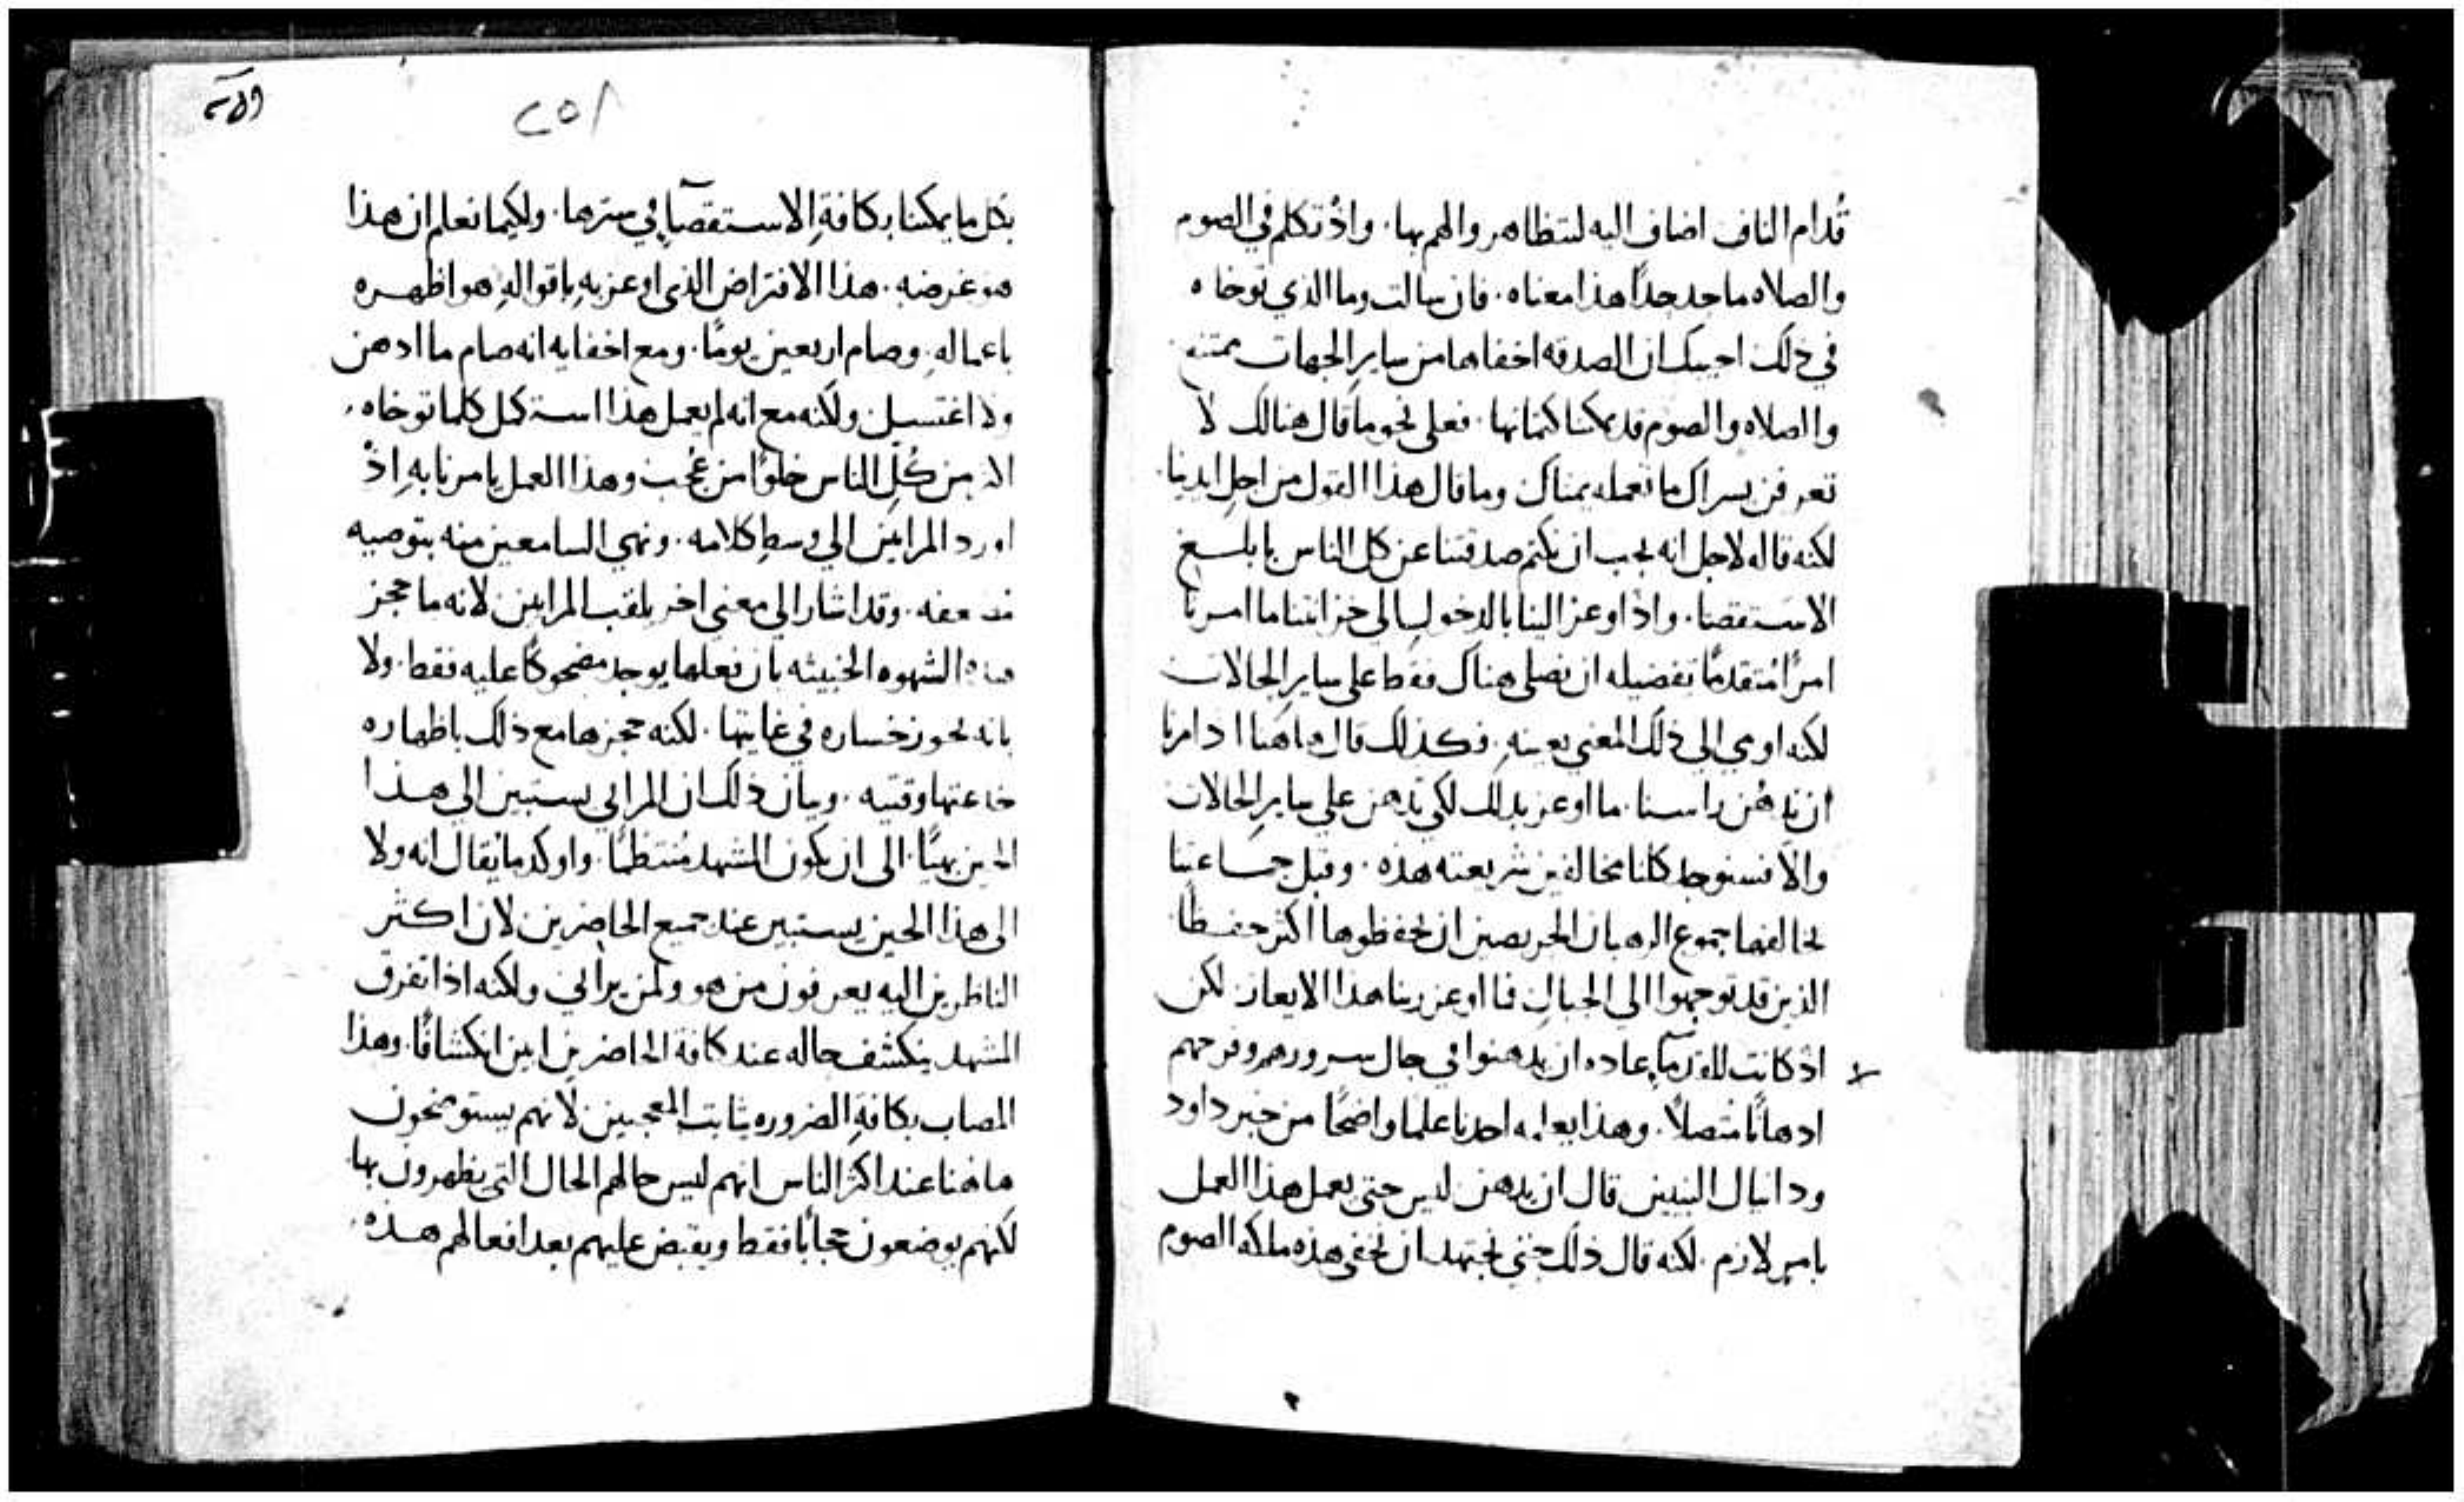 قُدام الناس اضاف اليه لتتظاهروا لهم بها. واذ تكلم في الصوم
والصلاه ماحدد جداً هذا معناه. فان سالت وما الذي توخاه
في ذلك اجيبك ان الصدقه اخفاها من ساير الجهات ممتنع.
والصلاه والصوم قد يمكننا كتمانها. فعلى نحو ما قال هنالك لا
تعرفن يسراك ما تعمله يمناك وما قال هذا القول من اجل ايدينا.
لكنه قاله لاجل انه يجب ان نكتم صدقتنا عن كل الناس بابلغ
الاستقصا. واذ اوعز الينا بالدخول الى خزانتنا ما امرنا
امرًا مُتقدمًا تفضيله ان نصلي هناك فقط على ساير الحالات
لكنه اومي الي ذلك المعني بعينهِ. فكذلك قال هاهنا اذ امرنا
ان ندهُن راسنا. ما اوعز بذلك لكي ندهن علي ساير الحالات
والاّ فسنوجد كلنا مخالفين شريعته هذه. وقبل جماعتنا
يخالفها جموع الرهبان الحريصين ان يحفظوها اكثر حفظًا
الذين قد توجهوا الى الجبال فما اوعز ربنا هذا الايعاز لكن
اذ كانت للقدمآ عاده ان يدهنوا في حال سرورهم وفرحهم
ادهانًا متصلاً. وهذا يعلمه احدنا علما واضحًا من خبر داود
ودانيال النبيين قال ان يدهن ليس حتى يعمل هذا العمل
بامرٍ لازم. لكنه قال ذلك حتي نجتهد ان نخفي هذه ملكه الصوم
٢٥٨
بكل ما يمكننا بكافةِ الاستقصآ في سترها. ولكيما نعلم ان هذا
هو غرضه. هذا الافتراض الذي اوعز بهِ باقوالهِ هو اظهره
باعمالهِ. وصام اربعين يومًا. ومع اخفايه انه صام ما ادهن
ولا اغتسل ولكنه مع انه لم يعمل هذا استكمل كلما توخاه.
اكثر من كُلِ الناس خلوًا من عُجب وهذا العمل يامرنا بهِ اذْ
اورد المرايين الي وسطِ كلامه. ونهي السامعين منه بتوصيه
مضعفه. وقد اشار الي معني اخر بلقب المرايين لانه ما حجز
هذه الشهوه الخبيثه بان فعلها يوجد مضحوكًا عليه فقط. ولا
بانه يحوز خساره في غايتها. لكنه حجزها مع ذلك باظهاره
خداعتها وقتيه. وبيان ذلك ان المرائي يستبين الي هذا
الحين بهيًا. الى ان يكون المشهد مُنتظمًا. واوكد ما يقال انه ولا
الى هذا الحين يستبين عند جميع الحاضرين لان اكثر
الناظرين اليه يعرفون من هو ولمن يرائي ولكنه اذا تفرق
المشهد ينكشف حاله عند كافة الحاضرين ابين انكشافًا. وهذا
المصاب بكافةِ الضروره ينابت المعجبين لانهم يستوضحون
هاهنا عند اكثر الناس انهم ليس حالهم الحال التي يظهرون بها.
لكنهم يوضعون حجابًا فقط ويقبض عليهم بعد افعالهم هذه.